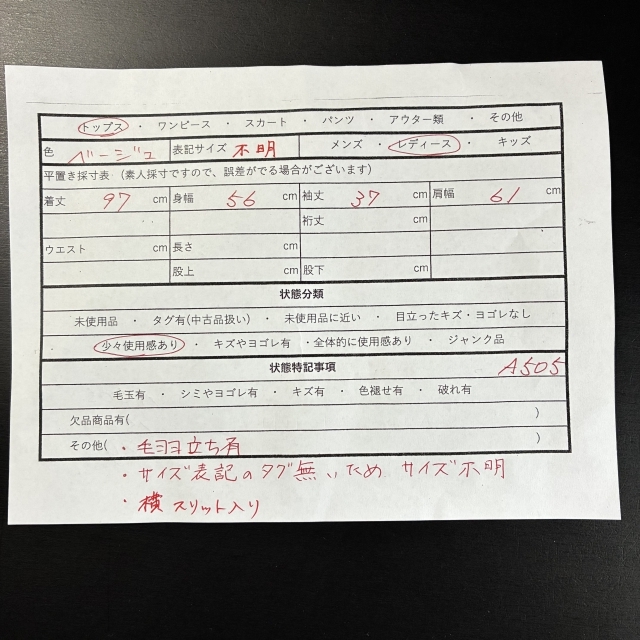 トップス ・ ワンピース ・ スカート ・ パンツ ・ アウター類 ・ その他
色 ベージュ 表記サイズ 不明 メンズ ・ レディース ・ キッズ
平置き採寸表（素人採寸ですので、誤差がでる場合がございます）
着丈 97 cm 身幅 56 cm 袖丈 37 cm 肩幅 61 cm
裄丈 cm
ウエスト cm 長さ cm
股上 cm 股下 cm
状態分類
未使用品 ・ タグ有(中古品扱い) ・ 未使用品に近い ・ 目立ったキズ・ヨゴレなし
少々使用感あり ・ キズやヨゴレ有 ・全体的に使用感あり ・ ジャンク品
状態特記事項 A505
毛玉有 ・ シミやヨゴレ有 ・ キズ有 ・ 色褪せ有 ・ 破れ有
欠品商品有( )
その他( ・毛羽立ち有 )
・サイズ表記のタグ無いため サイズ不明
・横スリット入り